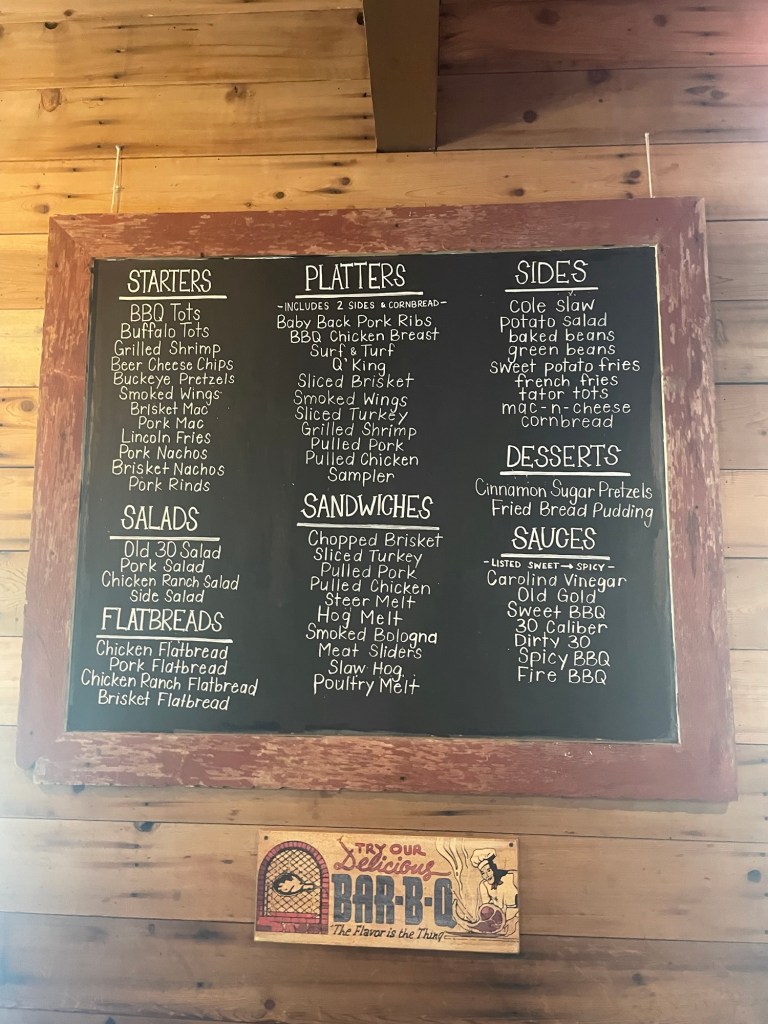 STARTERS
BBQ Tots
Buffalo Tots
Grilled Shrimp
Beer Cheese Chips
Buckeye Pretzels
Smoked Wings
Brisket Mac
Pork Mac
Lincoln Fries
Pork Nachos
Brisket Nachos
Pork Rinds
SALADS
Old 30 Salad
Pork Salad
Chicken Ranch Salad
Side Salad
FLATBREADS
Chicken Flatbread
Pork Flatbread
Chicken Ranch Flatbread
Brisket Flatbread
PLATTERS
-INCLUDES 2 SIDES & CORNBREAD-
Baby Back Pork Ribs
BBQ Chicken Breast
Surf & Turf
Q' King
Sliced Brisket
Smoked Wings
Sliced Turkey
Grilled Shrimp
Pulled Pork
Pulled Chicken
Sampler
SANDWICHES
Chopped Brisket
Sliced Turkey
Pulled Pork
Pulled Chicken
Steer Melt
Hog Melt
Smoked Bologna
Meat Sliders
Slaw Hog
Poultry Melt
SIDES
cole slaw
potato salad
baked beans
green beans
sweet potato fries
french fries
tator tots
mac-n-cheese
cornbread
DESSERTS
Cinnamon Sugar Pretzels
Fried Bread Pudding
SAUCES
-LISTED SWEET → SPICY-
Carolina Vinegar
Old Gold
Sweet BBQ
30 Caliber
Dirty 30
Spicy BBQ
Fire BBQ
TRY OUR
Delicious
BAR-B-Q
The Flavor is the Thing